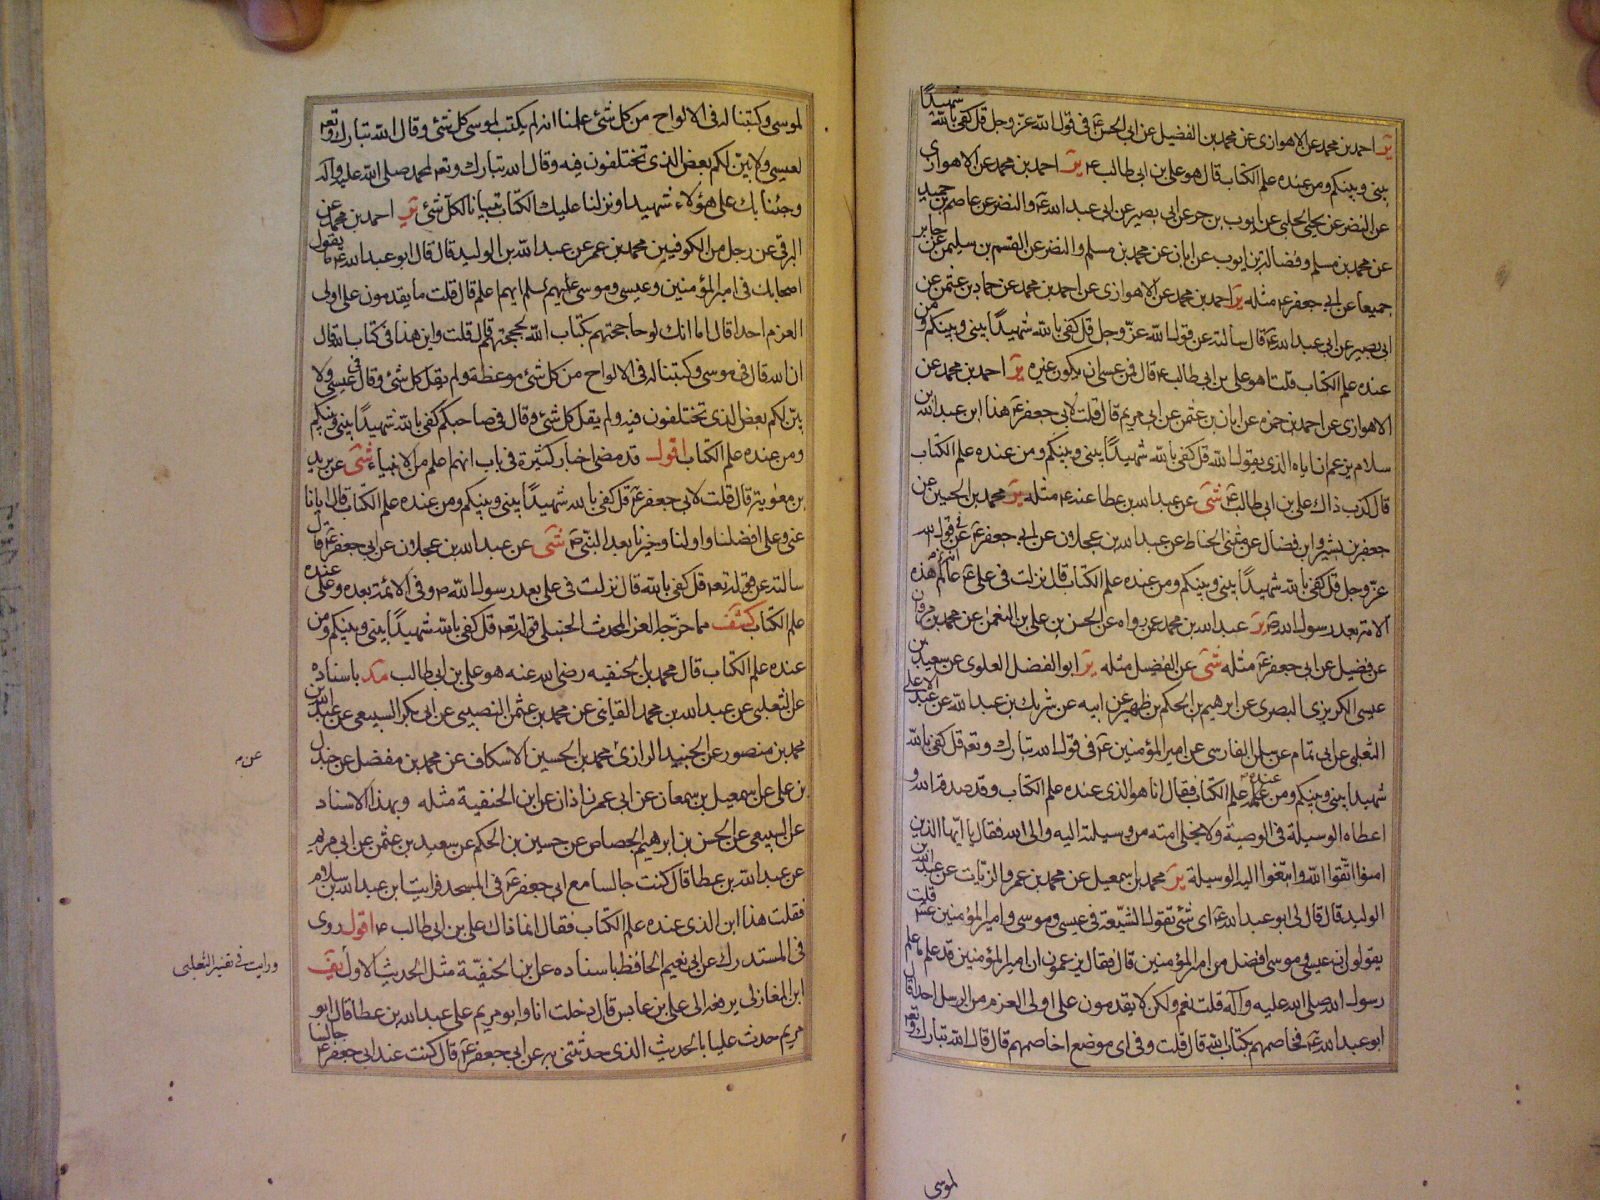 شهيدًا
ير احمد بن محمد عن الاهوازى عن محمد بن الفضيل عن ابى الحسن ع فى قول الله عزوجل قل كفى بالله
بينى وبينكم ومن عنده علم الكتاب قال هو على بن ابى طالب ع ير احمد بن محمد عن الاهوازى
عن النضر عن يحيى الحلبى عن ايوب بن حر عن ابى بصير عن ابى عبد الله ع والنضر عن عاصم بن حميد
عن محمد بن مسلم وفضالة بن ايوب عن ابان عن محمد بن مسلم والنضر عن القسم بن سليمن عن جابر
جميعا عن ابى جعفر ع مثله ير احمد بن محمد عن الاهوازى عن احمد بن محمد عن حماد بن عثمن عن
ابى بصير عن ابى عبد الله ع قال سالته عن قول الله عزّ وجل قل كفى بالله شهيدًا بينى وبينكم ومن
عنده علم الكتاب قلت اهو على بن ابى طالب ع قال فمن عسى ان يكون غيره ير احمد بن محمد عن
الاهوازى عن احمد بن حمزه عن ابان بن عثمن عن ابى مريم قال قلت لابى جعفر ع هذا ابن عبد الله بن
سلام يزعم ان اباه الذى يقول الله قل كفى بالله شهيدًا بينى وبينكم ومن عنده علم الكتاب
قال كذب ذاك على بن ابى طالب ع شى عن عبد الله بن عطا عنه ع مثله ير محمد بن الحسين عن
جعفر بن بشير وابن فضال عن مثنى الحناط عن عبد الله بن عجلان عن ابى جعفر ع فى قول الله
عزّ وجل قل كفى بالله شهيدًا بينى وبينكم ومن عنده علم الكتاب قال نزلت فى على ع عالم هذه
الامة بعد رسول الله ص ير عبد الله بن محمد عمن رواه عن الحسن بن على بن النعمن عن محمد بن مروان
عن فضيل عن ابى جعفر ع مثله شى عن الفضيل مثله ير ابو الفضل العلوى عن سعيد بن
عيسى الكريزى البصرى عن ابرهيم بن الحكم بن ظهير عن ابيه عن شريك بن عبد الله عن عبد الاعلى
الثعلبى عن ابى تمام عن سلمن الفارسى عن امير المؤمنين ع فى قول الله تبارك وتع قل كفى بالله
شهيدا بينى وبينكم ومن عنده علم الكتاب فقال انا هو الذى عنده علم الكتاب وقد صدقه الله و
اعطاه الوسيلة فى الوصية ولا يخلى امته من وسيلته اليه والى الله فقال يا ايّها الذين
امنوا اتّقوا الله وابتغوا اليه الوسيلة ير محمد بن اسمعيل عن محمد بن عمرو الزيّات عن عبد الله بن
الوليد قال قال لى ابو عبد الله ع اى شئ تقول الشيعة فى عيسى وموسى وامير المؤمنين ع قلت
يقولون ان عيسى وموسى افضل من امير المؤمنين قال فقال يزعمون ان امير المؤمنين قد علم ما علم
رسول الله صلى الله عليه وآله قلت نعم ولكن لا يقدمون على اولى العزم من الرسل احدا قال
ابو عبد الله ع فخاصمهم بكتاب الله قال قلت وفى اى موضع اخاصمهم قال قال الله تبارك وتع
لموسى
لموسى وكتبنا له فى الالواح من كل شئ علمنا انه لم يكتب لموسى كل شئ وقال الله تبارك وتع
لعيسى ولابيّن لكم بعض الذى تختلفون فيه وقال الله تبارك وتع لمحمد صلى الله عليه وآله
وجئنا بك على هؤلاء شهيدا ونزلنا عليك الكتاب تبيانا لكل شئ ير احمد بن محمد عن
البرقى عن رجل من الكوفيين عن محمد بن عمر عن عبد الله بن الوليد قال قال ابو عبد الله ع ما يقول
اصحابك فى امير المؤمنين وعيسى وموسى عليهم السلم ايهم اعلم قال قلت ما يقدمون على اولى
العزم احدا قال اما انك لو حاججتهم بكتاب الله لحججتهم قال قلت واين هذا فى كتاب الله قال
ان الله قال فى موسى وكتبنا له فى الالواح من كل شئ موعظة ولم يقل كل شئ وقال فى عيسى ولا
بيّن لكم بعض الذى تختلفون فيه ولم يقل كل شئ وقال فى صاحبكم كفى بالله شهيدًا بينى وبينكم
ومن عنده علم الكتاب اقول قد مضى اخبار كثيرة فى باب انهم اعلم من الانبياء شى عن بريد
بن معوية قال قلت لابى جعفر ع قل كفى بالله شهيدًا بينى وبينكم ومن عنده علم الكتاب قال ايانا
عنى وعلى افضلنا واولنا وخيرنا بعد النبى ص شى عن عبد الله بن عجلان عن ابى جعفر ع قال
سالته عن قوله تع قل كفى بالله قال نزلت فى على بعد رسول الله ص وفى الائمة بعده وعلى عنده
علم الكتاب كشف مما خرّجه العز المحدث الحنبلى قوله تع قل كفى بالله شهيدًا بينى وبينكم ومن
عنده علم الكتاب قال محمد بن الحنفيه رضى الله عنه هو على بن ابى طالب مد باسناده
عن الثعلبى عن عبد الله بن محمد القاينى عن محمد بن عثمن النصيبى عن ابى بكر السبيعى عن عبد الله بن
محمد بن منصور عن الجنيد الرازى محمد بن الحسين الاسكاف عن محمد بن مفضل عن جندل
عن م
بن على عن اسمعيل بن سمعان عن ابى عمر زاذان عن ابن الحنفية مثله وبهذا الاسناد
عن السبيعى عن الحسن بن ابرهيم الجصاص عن حسين بن الحكم عن سعيد بن عثمن عن ابى مريم
عن عبد الله بن عطا قال كنت جالسا مع ابى جعفر ع فى المسجد فرايت ابن عبد الله بن سلام
فقلت هذا ابن الذى عنده علم الكتاب فقال انما ذاك على بن ابى طالب ع اقول روى
فى المستدرك عن ابى نعيم الحافظ باسناده عن ابن الحنفيّة مثل الحديث الاول يف
ورايت فى تفسير الثعلبى
ابن المغازلى يرفعه الى على بن عابس قال دخلت انا وابو مريم على عبد الله بن عطا قال ابو
مريم حدث عليا بالحديث الذى حدثتنى به عن ابى جعفر ع قال كنت عند ابى جعفر ع جالسا